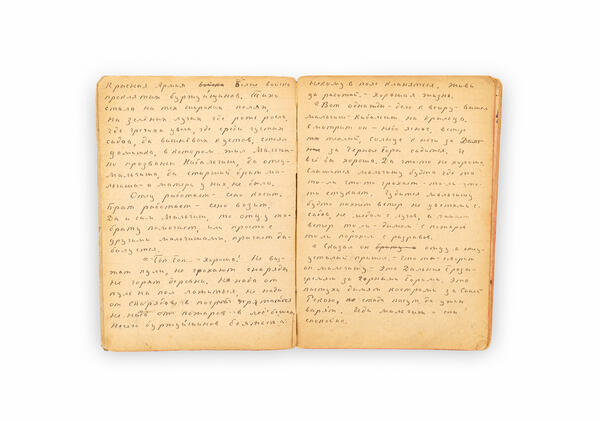 Красная Армия белые войска
проклятых буржуинов. Тихо
стало на тех широких полях,
на зелёных лугах где рожь росла,
где гречиха цвела, где среди густых
садов, да вишнёвых кустов, стоял
домишко, в котором жил Мальчи-
по прозванью Кибальчиш, да отец
Мальчиша, да старший брат Маль-
чиша а матери у них не было.
Отец работает – сено косит.
Брат работает – сено возит.
Да и сам Мальчиш, то отцу то
брату помогает, или просто с
другими мальчишами, прыгает да
балуется.
"Гоп. Гоп.. – Хорошо! Не виз-
жат пули, не грохают снаряды
не горят деревни. Не надо от
пуль на пол ложиться не надо
от снарядов в погреб прятаться
не надо от пожаров в лес бежать
нечего буржуинов бояться.
некому в пояс кланяться. Живи
да работай – хорошая жизнь.
"Вот однажды – дело к вечеру – вышел
мальчиш – Кибальчиш на крыльцо.
Смотрит он – небо ясное, ветер
тёплый, солнце к ночи за
за Черные Горы садится. И
всё бы хорошо. Да что-то не хорошо
слышится мальчишу будто где то
то-ли что-то грохает – то-ли что-
то стукает. Чудится мальчишу
будто пахнет ветер не цветами с
садов, не мёдом с лугов, а пахнет
ветер то ли – дымом с пожаров
то ли порохом с разрывов.
"Сказал он отцу а отец
усталый пришёл. – Что ты – говорит
он мальчишу – Это дальние грозы
гремят за Черными Горами. Это
пастухи дымят кострами за Синей
Рекою, стада пасут да ужин
варят. Иди мальчиш и спи
спокойно.